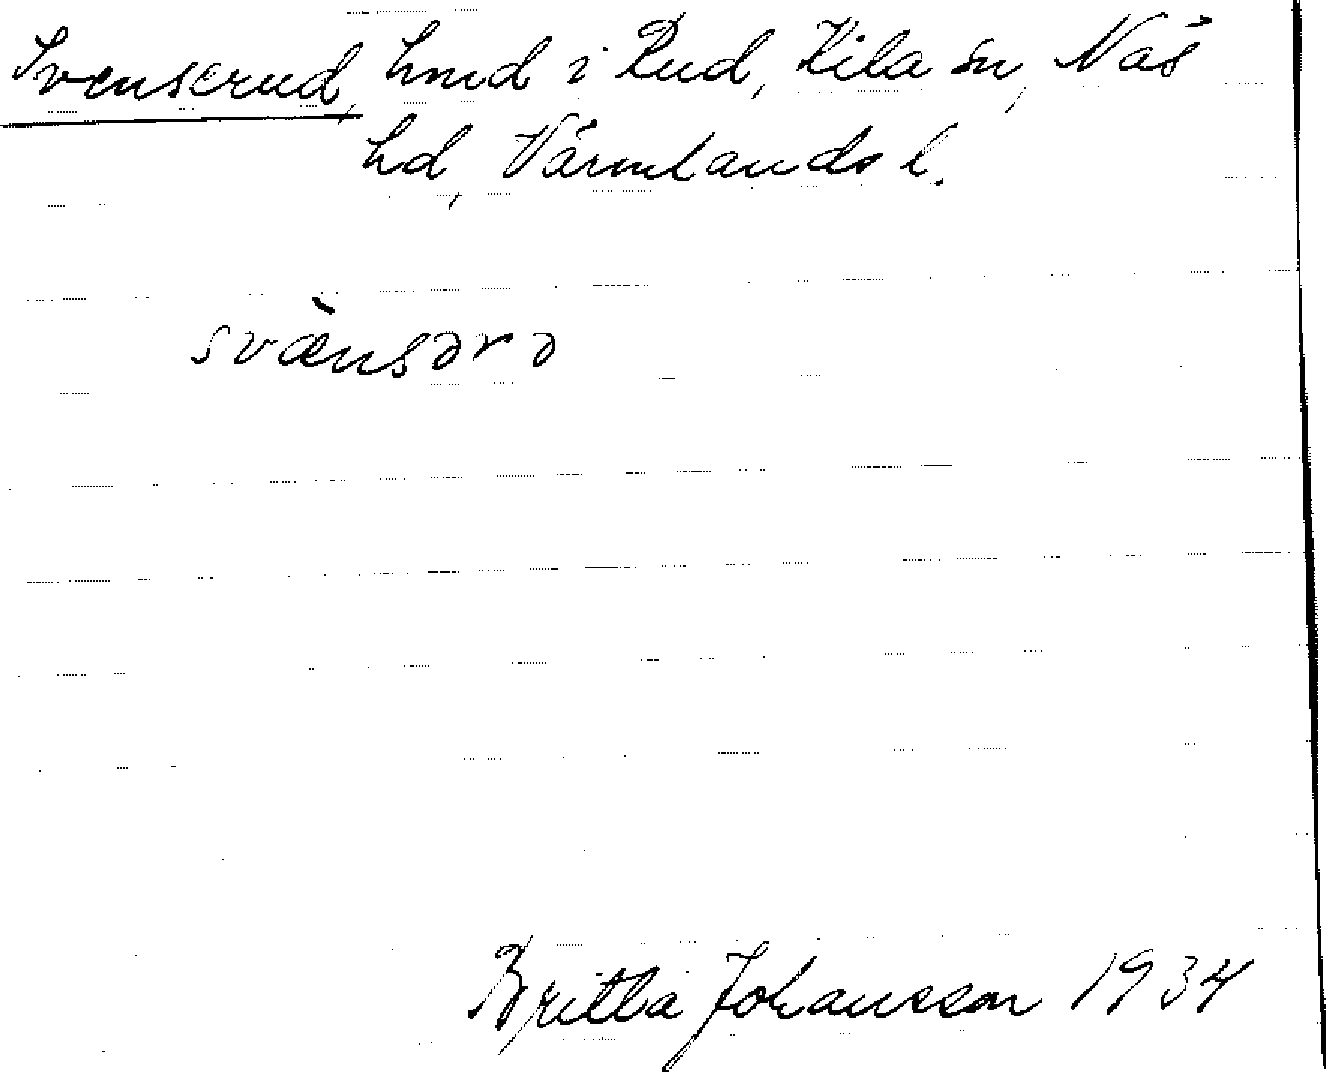 Svenserud, hmd i Rud, Kila sn, Näs
hd, Värmlands l.
svæ̀nsərə
Britta Johansson 1934